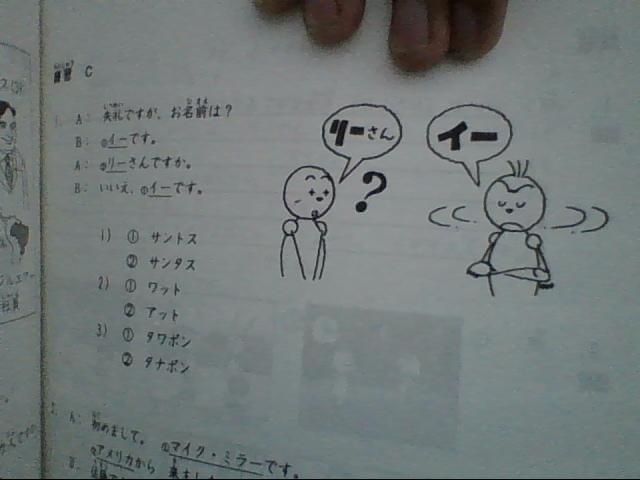 C
1. A: 失礼ですが、お名前は？
B: ①イーです。
A: ②リーさんですか。
B: いいえ、①イーです。
リーさん
イー
?
1) ① サントス
② サンタス
2) ① ワット
② アット
3) ① タワポン
② タナポン
2. A: 初めまして。 ①マイク・ミラーです。
②アメリカから